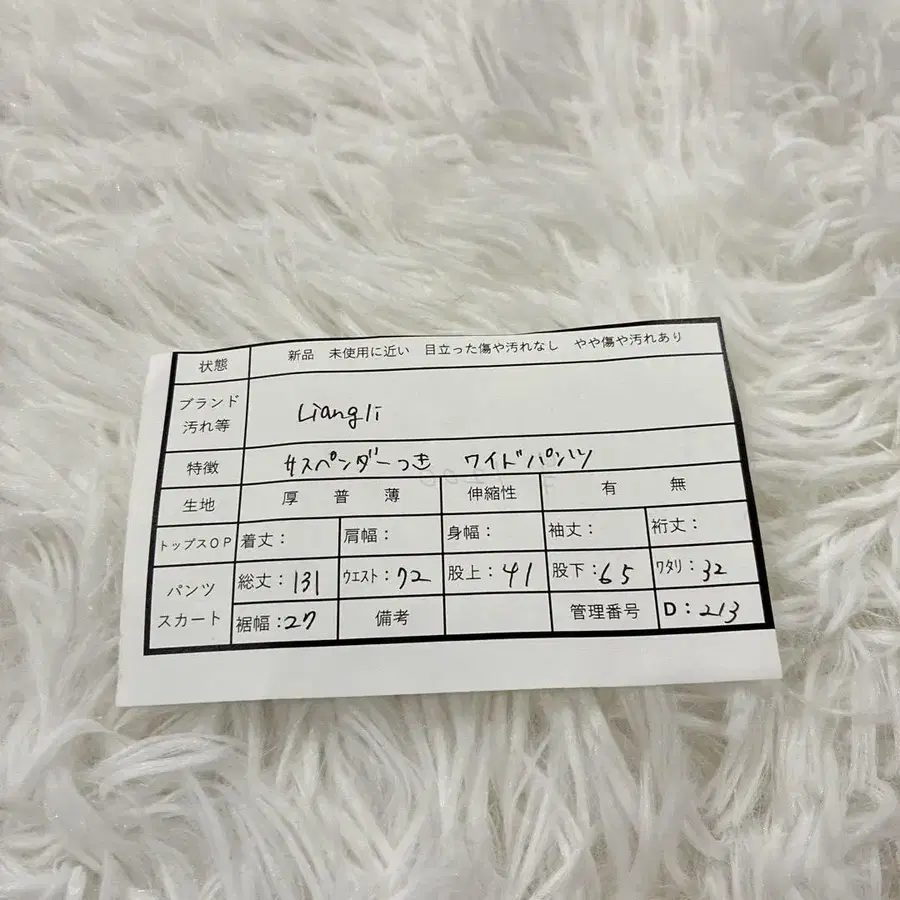 状態 新品 未使用に近い 目立った傷や汚れなし やや傷や汚れあり
ブランド
汚れ等 Liangli
特徴 サスペンダーつき ワイドパンツ
生地 厚 普 薄 伸縮性 有 無
トップスOP 着丈: 肩幅: 身幅: 袖丈: 裄丈:
パンツ
スカート
総丈:131 ウエスト:72 股上:41 股下:65 ワタリ:32
裾幅:27 備考 管理番号 D:213